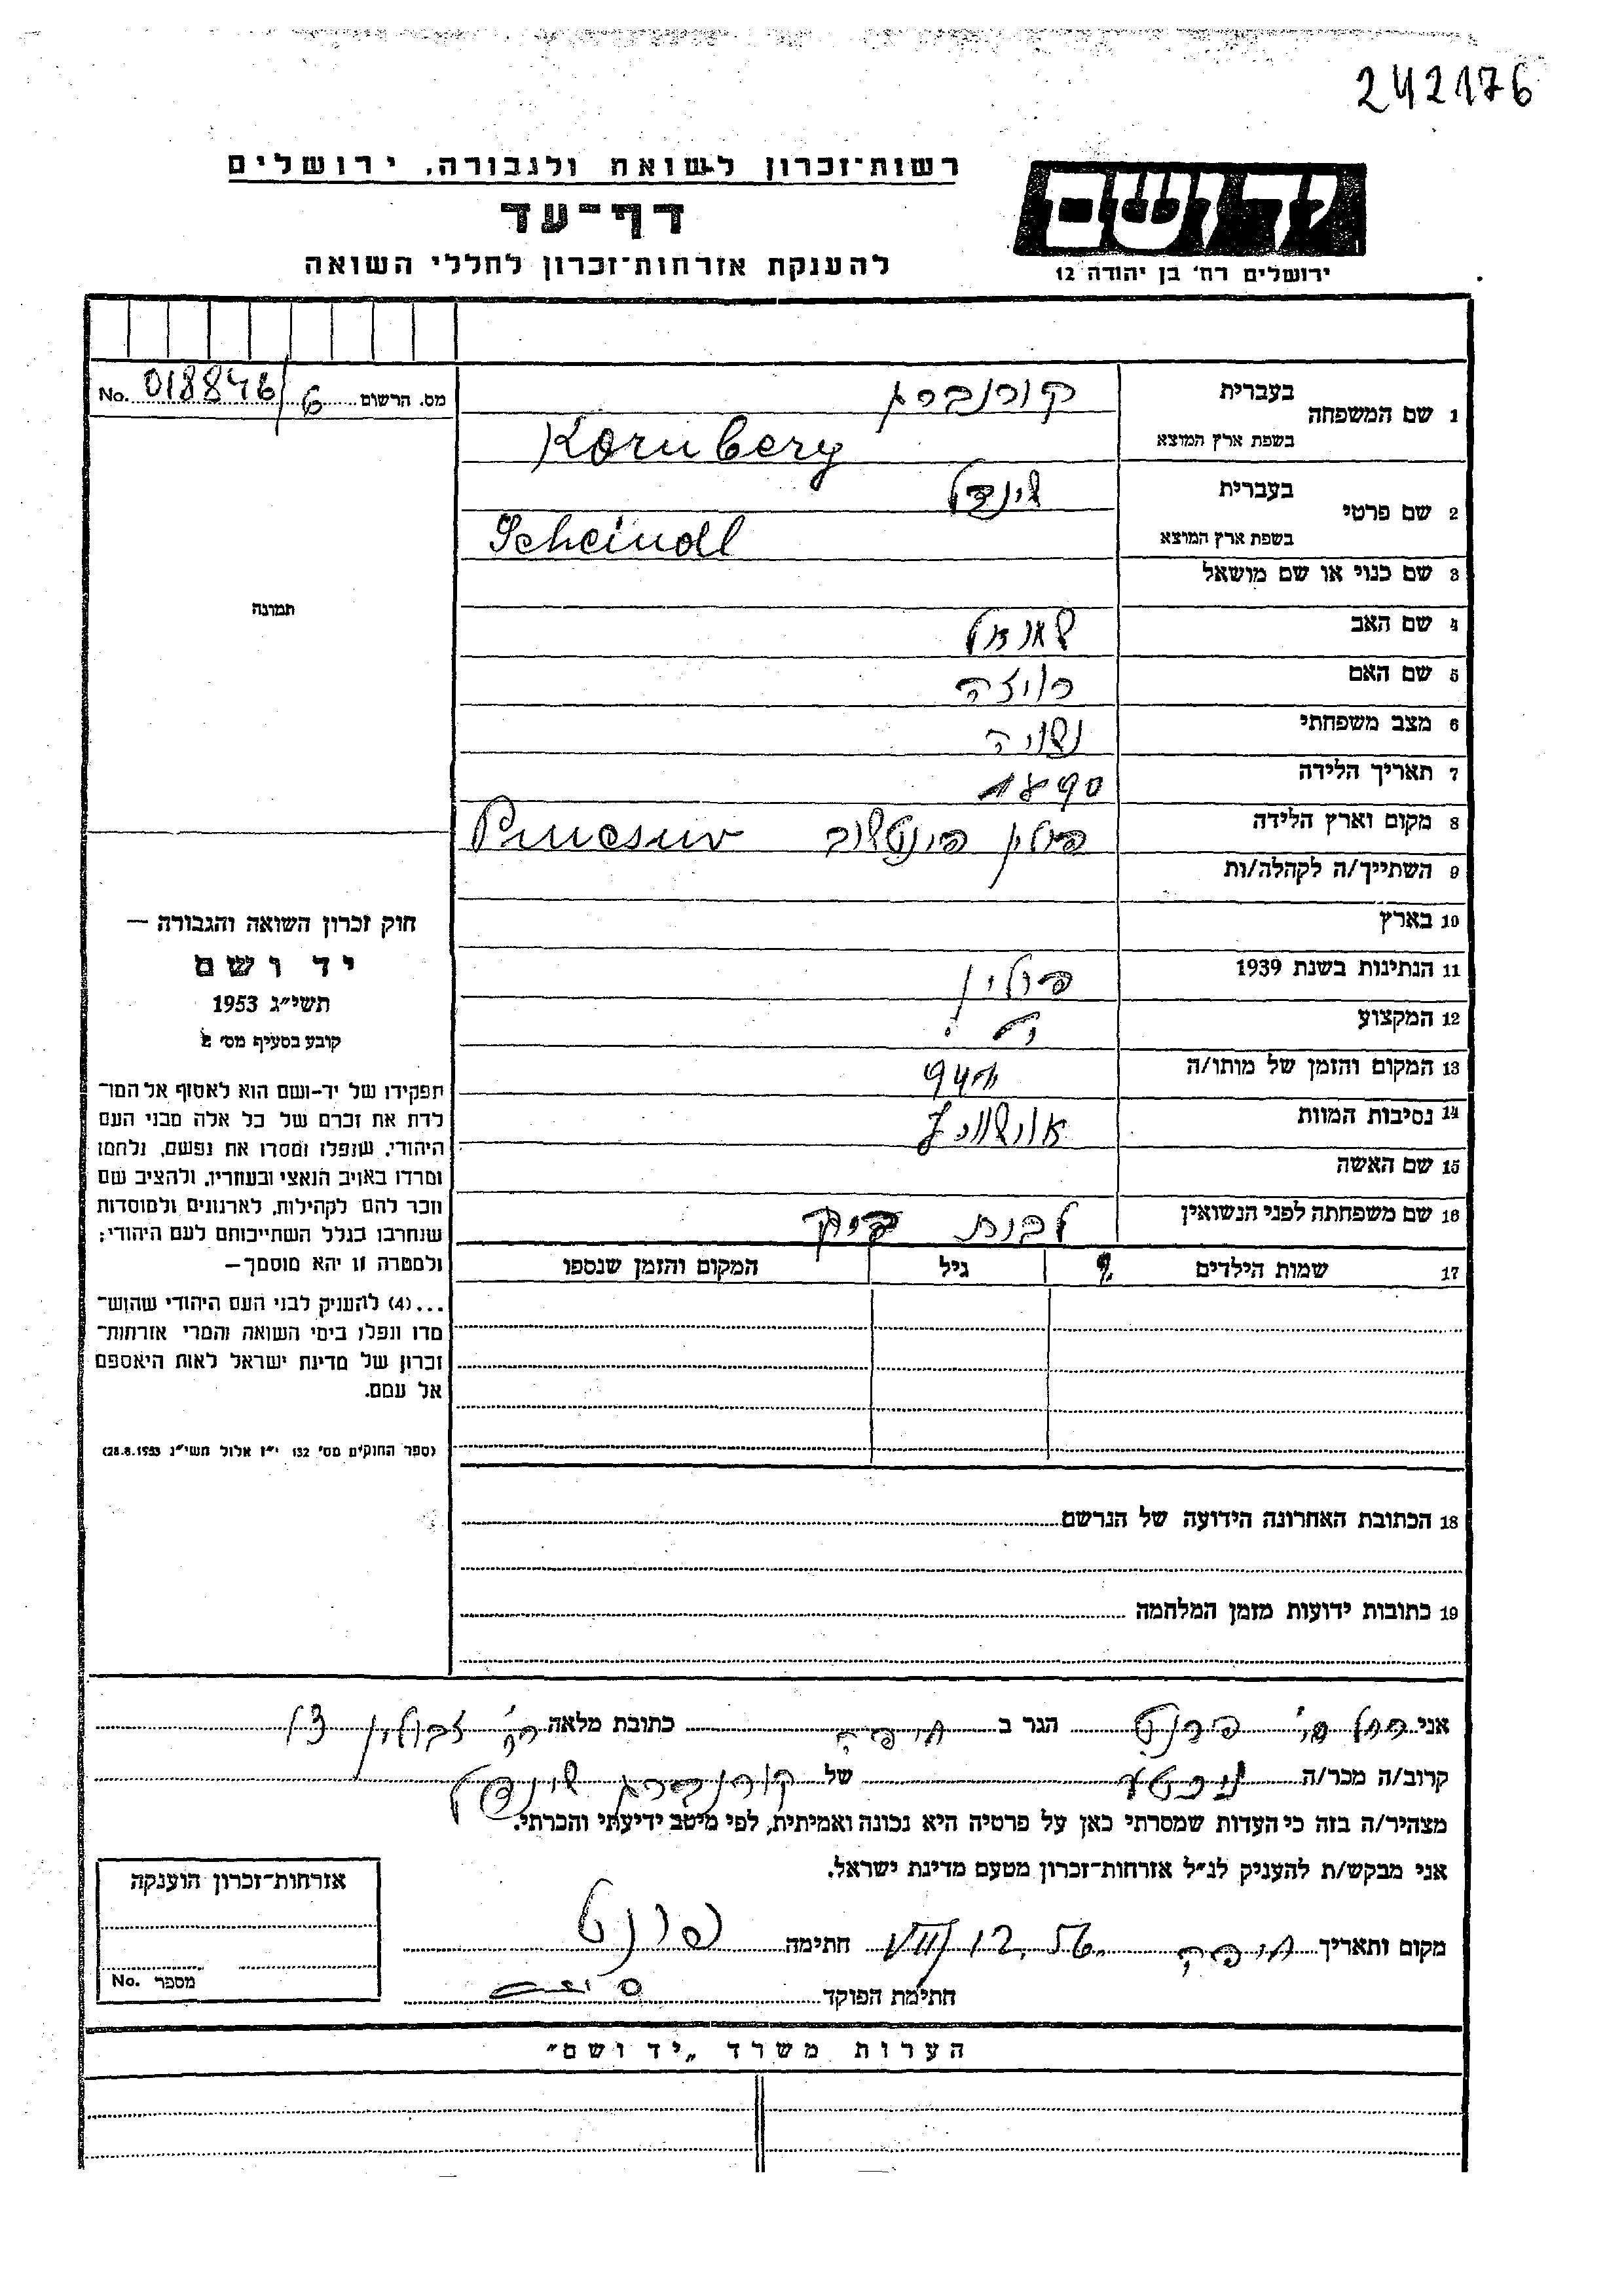 242176
רשות־זכרון לשואה ולגבורה, ירושלים
יד ושם
דף־עד
להענקת אזרחות־זכרון לחללי השואה
ירושלים רח׳ בן יהודה 12
מס. הרשום 6/018846 No.
1 שם המשפחה בעברית קורנברג
בשפת ארץ המוצא Kornberg
2 שם פרטי בעברית שינדל
בשפת ארץ המוצא Scheindl
3 שם כנוי או שם מושאל
תמונה
4 שם האב
5 שם האם רויזה
6 מצב משפחתי נשויה
7 תאריך הלידה 1890
8 מקום וארץ הלידה פולין
9 השתייך/ה לקהלה/ות
10 בארץ
11 הנתינות בשנת 1939 פולין
12 המקצוע
13 המקום והזמן של מותו/ה
14 נסיבות המוות
15 שם האשה
16 שם משפחתה לפני הנשואין לבית
17 שמות הילדים גיל המקום והזמן שנספו
חוק זכרון השואה והגבורה —
יד ושם
תשי״ג 1953
קובע בסעיף מס׳ 2
תפקידו של יד-ושם הוא לאסוף אל המו־
לדת את זכרם של כל אלה מבני העם
היהודי, שנפלו ומסרו את נפשם, נלחמו
ומרדו באויב הנאצי ובעוזריו, ולהציב שם
וזכר להם לקהילות, לארגונים ולמוסדות
שנחרבו בגלל השתייכותם לעם היהודי;
ולמטרה זו יהא מוסמך—
...(4) להעניק לבני העם היהודי שהוש־
מדו ונפלו בימי השואה והמרי אזרחות־
זכרון של מדינת ישראל לאות היאספם
אל עמם.
(ספר החוקים מס׳ 132 י״ז אלול תשי״ג 28.8.1953)
18 הכתובת האחרונה הידועה של הנרשם
19 כתובות ידועות מזמן המלחמה
אני רחל הגר ב חיפה כתובת מלאה רח׳ זבולון 13
קרוב/ה מכר/ה של קורנברג שינדל
מצהיר/ה בזה כי העדות שמסרתי כאן על פרטיה היא נכונה ואמיתית, לפי מיטב ידיעתי והכרתי.
אני מבקש/ת להעניק לנ״ל אזרחות־זכרון מטעם מדינת ישראל.
מקום ותאריך חיפה חתימה
חתימת הפוקד
אזרחות־זכרון הוענקה
מספר No.
הערות משרד „יד ושם״